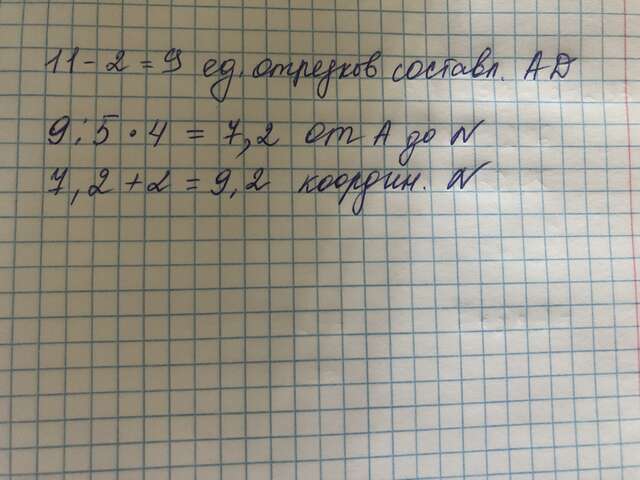 11 - 2 = 9 ед. отрезков составл. AD
9 : 5 · 4 = 7,2 от A до N
7,2 + 2 = 9,2 координ. N